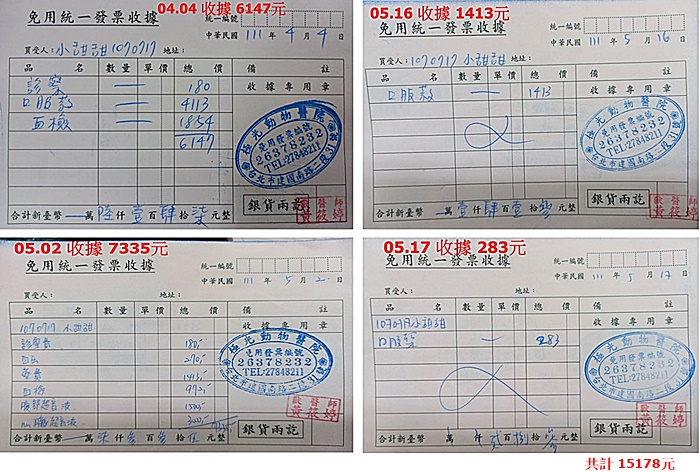 04.04 收據 6147元
免用統一發票收據
統一編號
中華民國 111 年 4 月 4 日
買受人：小甜甜1070717 地址：
品名 數量 單價 總價 備註
診察 — 180 收據專用章
口服藥 — 4113
血檢 — 1854
6147
極光動物醫院
免用發票編號
26378232
TEL:27848211
台北市建國南路二段31號
銀貨兩訖
獸醫師
黃筱婷
合計新臺幣 一 萬 陸 仟 壹 百 肆 拾 柒 元整
05.16 收據 1413元
免用統一發票收據
統一編號
中華民國 111 年 5 月 16 日
買受人：1070717 小甜甜 地址：
品名 數量 單價 總價 備註
口服藥 — 1413 收據專用章
極光動物醫院
免用發票編號
26378232
TEL:27848211
台北市建國南路二段31號
銀貨兩訖
獸醫師
黃筱婷
合計新臺幣 一 萬 壹 仟 肆 百 壹 拾 參 元整
05.02 收據 7335元
免用統一發票收據
統一編號
中華民國 111 年 5 月 2 日
買受人： 地址：
品名 數量 單價 總價 備註
1070717 小甜甜 收據專用章
診察費 180
270
藥費 1413
血檢 972
1500
3000
極光動物醫院
免用發票編號
26378232
TEL:27848211
台北市建國南路二段31號
獸醫師
黃筱婷
銀貨兩訖
合計新臺幣 一 萬 柒 仟 參 百 參 拾 伍 元整
05.17 收據 283元
免用統一發票收據
統一編號
中華民國 111 年 5 月 17 日
買受人： 地址：
品名 數量 單價 總價 備註
小甜甜 收據專用章
口服藥 — 283
極光動物醫院
免用發票編號
26378232
TEL:27848211
台北市建國南路二段31號
獸醫師
黃筱婷
銀貨兩訖
合計新臺幣 萬 仟 貳 百 捌 拾 參 元整
共計 15178元